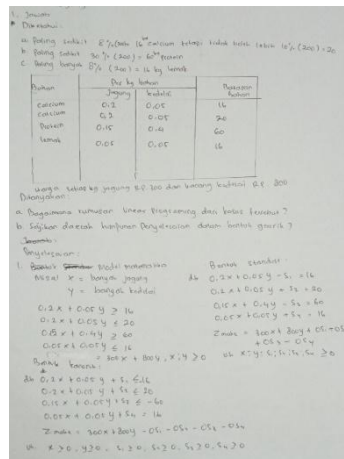 1. Jawab
* Diketahui :
a. Paling sedikit 8% calcium tetapi tidak boleh lebih 10% (200) = 20
b. Paling sedikit 30% (200) = 60 Protein
c. Paling banyak 8% (200) = 16 kg lemak
Bahan
Per kg bahan
Jagung
kedelai
bahan
calcium 0.2 0.05 16
calcium 0.2 0.05 20
Protein 0.15 0.4 60
Lemak 0.05 0.05 16
Harga kg jagung Rp. 300 dan kacang kedelai Rp. 800
Ditanyakan :
a. Bagaimana rumusan linear Programing dari kasus tersebut ?
b. Sajikan daerah himpunan Penyelesaian dalam bentuk grafik ?
Penyelesaian :
1. Model matematika
Misal x = banyak jagung
y = banyak kedelai
0.2x + 0.05y ≥ 16
0.2x + 0.05y ≤ 20
0.15x + 0.4y ≥ 60
0.05x + 0.05y ≤ 16
= 300x + 800y, x; y ≥ 0
Bentuk standar
db 0.2x + 0.05y - S₁ = 16
0.2x + 0.05y + S₂ = 20
0.15x + 0.4y - S₃ = 60
0.05x + 0.05y + S₄ = 16
Z maks = 300x + 800y
Bentuk
db 0.2x + 0.05y + S₁ ≤ 16
0.05x + 0.05y + S₄ = 16
Z maks = 300x + 800y - 0S₁ - 0S₂ - 0S₃ - 0S₄
x ≥ 0, y ≥ 0, S₁ ≥ 0, S₂ ≥ 0, S₃ ≥ 0, S₄ ≥ 0